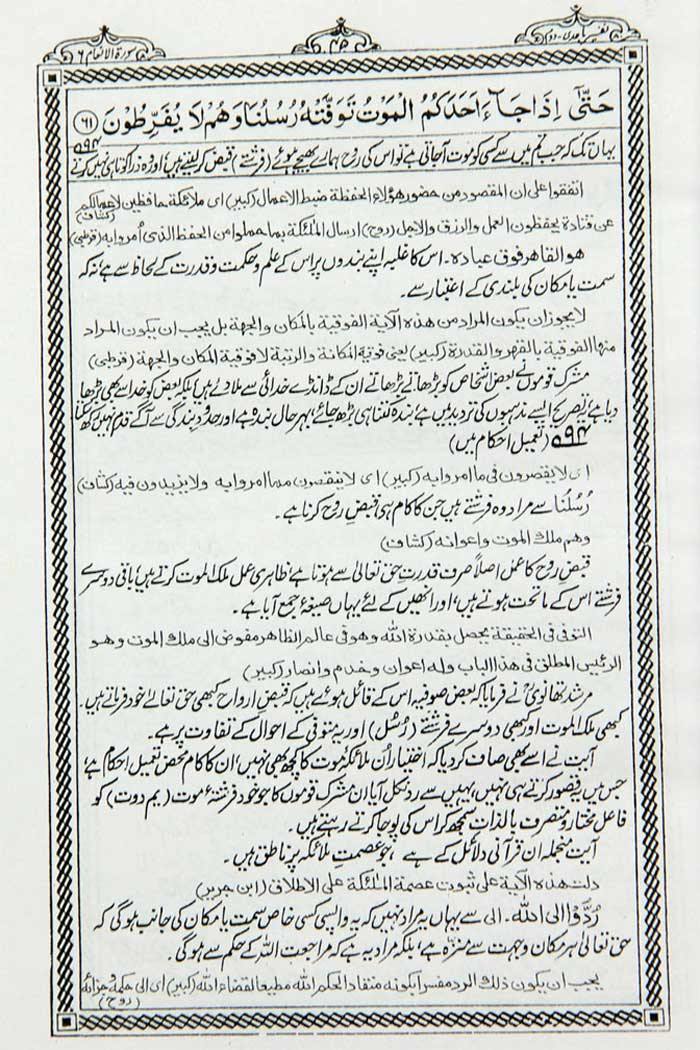 تفسیر ماجدی - دوم
سورۃ الانعام ٦
حَتّٰٓى اِذَا جَآءَ اَحَدَكُمُ الْمَوْتُ تَوَفَّتْهُ رُسُلُنَا وَهُمْ لَا يُفَرِّطُوْنَ ٦١
یہاں تک کہ جب تم میں سے کسی کو موت آجاتی ہے تو اس کی روح ہمارے بھیجے ہوئے (فرشتے) قبض کرلیتے ہیں اور وہ ذرا کوتاہی نہیں کرتے ٩٤
اتفقوا على ان المقصود من حضور هؤلاء الحفظة ضبط الاعمال (كبير) اى ملائكة حافظين لاعمالكم (كشاف)
عن قتادة يحفظون العمل والرزق والاجل (روح) ارسال الملئكة بما حملوا من الحفظ الذى امروا به (قرطبى)
هو القاهر فوق عباده۔ اس کا غلبہ اپنے بندوں پر اس کے علم و حکمت و قدرت کے لحاظ سے ہے، نہ کہ
سمت یا مکان کی بلندی کے اعتبار سے۔
لا يجوز ان يكون المراد من هذه الآية الفوقية بالمكان والجهة بل يجب ان يكون المراد
منها الفوقية بالقهر والقدرة (كبير) يعنى فوقية المكانة والرتبة لا فوقية المكان والجهة (قرطبى)
مشرک قوموں نے بعض اشخاص کو بڑھاتے بڑھاتے ان کے ڈانڈے خدائی سے ملادئے ہیں بلکہ بعض کو خدا سے بھی بڑھا
دیا ہے، تصریح ایسے مذہبوں کی تردید میں ہے، بندہ کتنا ہی بڑھ جائے، بہرحال بندہ ہے اور حدود بندگی سے آگے قدم نہیں رکھ سکتا
٩٤ (تعمیل احکام میں)
اى لا يقصرون فى ما امروا به (كبير) اى لا ينقصون مما امروا به ولا يزيدون فيه (كشاف)
رُسُلُنا سے مراد وہ فرشتے ہیں جن کا کام ہی قبضِ روح کرنا ہے۔
وهم ملك الموت واعوانه (كشاف)
قبض روح کا عمل اصلاً صرف قدرتِ حق تعالیٰ سے ہوتا ہے، ظاہری عمل ملک الموت کرتے ہیں، باقی دوسرے
فرشتے اس کے ماتحت ہوتے ہیں، اور انھیں کے لئے یہاں صیغۂ جمع آیا ہے۔
التوفى فى الحقيقة يحصل بقدرة الله وهو فى عالم الظاهر مفوض الى ملك الموت وهو
الرئيس المطلق فى هذا الباب وله اعوان وخدم وانصار (كبير)
مرشد تھانویؒ نے فرمایا کہ بعض صوفیہ اس کے قائل ہوئے ہیں کہ قبضِ ارواح کبھی حق تعالیٰ خود فرماتے ہیں۔
کبھی ملک الموت اور کبھی دوسرے فرشتے (رُسُل) اور یہ متوفی کے احوال کے تفاوت پر ہے۔
آیت نے اسے بھی صاف کردیا کہ اختیار اُن ملائکۂ موت کا کچھ بھی نہیں، ان کا کام محض تعمیل احکام ہے،
جس میں یہ قصور کرتے ہی نہیں، یہیں سے رد نکل آیا ان مشرک قوموں کا جو خود فرشتۂ موت (یم دوت) کو
فاعل مختار و متصرف بالذات سمجھ کر اس کی پوجا کرتے رہتے ہیں۔
آیت منجملہ ان قرآنی دلائل کے ہے، جو عصمتِ ملائکہ پر ناطق ہیں۔
دلت هذه الآية على ثبوت عصمة الملئكة على الاطلاق (ابن جرير)
رُدُّوْا الى اللہ۔ الی سے یہاں یہ مراد نہیں کہ یہ واپسی کسی خاص سمت یا مکان کی جانب ہوگی کہ
حق تعالیٰ ہر مکان و جہت سے منزہ ہے، بلکہ مراد یہ ہے کہ مراجعت اللہ کے حکم سے ہوگی۔
يجب ان يكون ذلك الرد مفسرا بكونه منقادا لحكم الله مطيعا لقضاء الله (كبير) اى الى حكمه وجزائه
(روح)